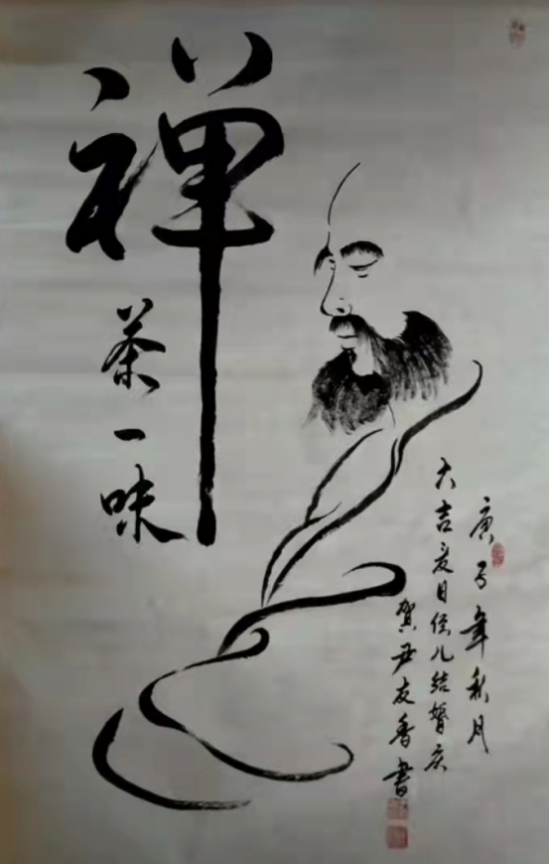 禅
茶一味
庚子年秋月
大吉日侄儿结婚庆
贺尹友香書